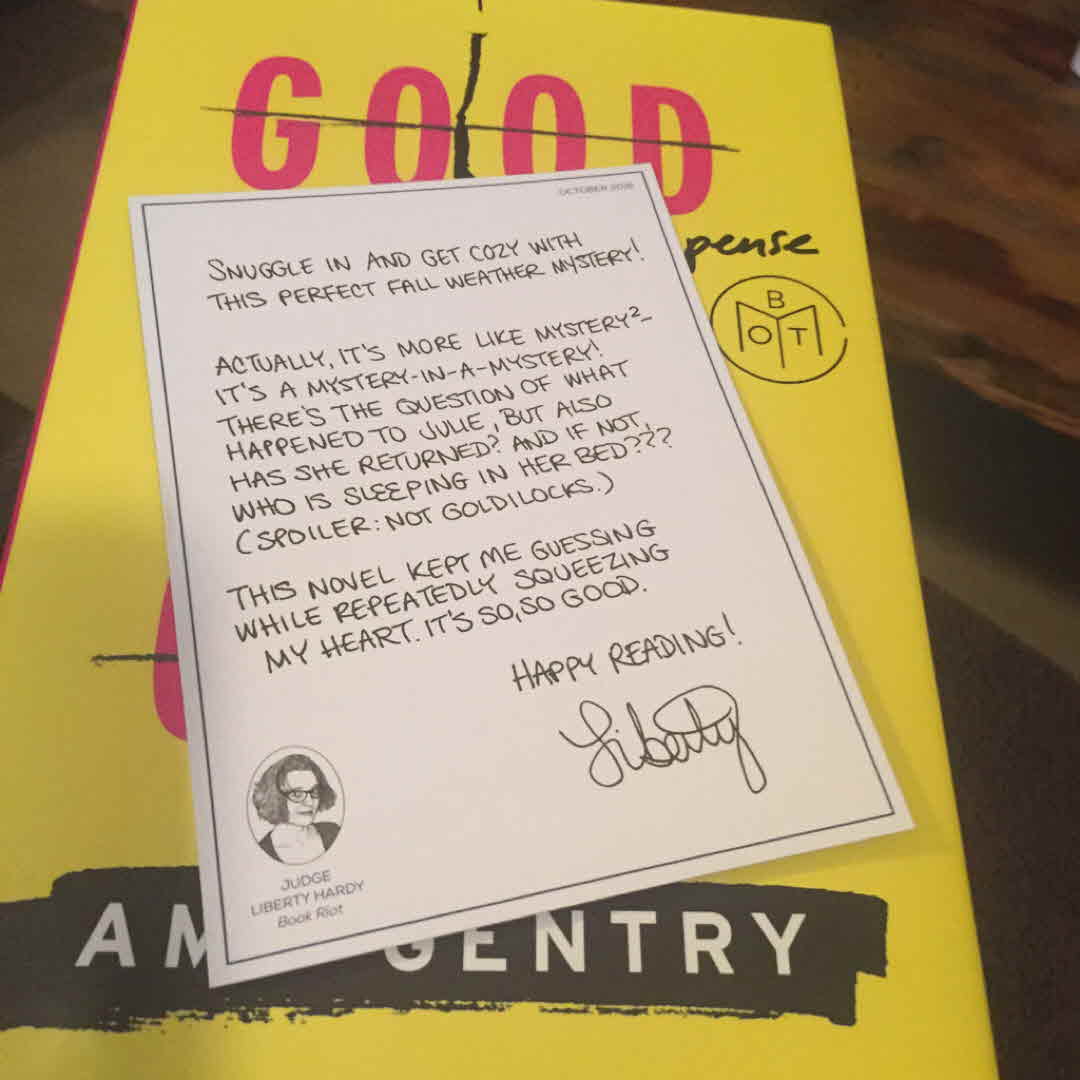 GOOD
pense
B
O T
OCTOBER 2016
SNUGGLE IN AND GET COZY WITH
THIS PERFECT FALL WEATHER MYSTERY!
ACTUALLY, IT'S MORE LIKE MYSTERY²-
IT'S A MYSTERY-IN-A-MYSTERY!
THERE'S THE QUESTION OF WHAT
HAPPENED TO JULIE, BUT ALSO
HAS SHE RETURNED? AND IF NOT,
WHO IS SLEEPING IN HER BED???
(SPOILER: NOT GOLDILOCKS.)
THIS NOVEL KEPT ME GUESSING
WHILE REPEATEDLY SQUEEZING
MY HEART. IT'S SO, SO GOOD.
HAPPY READING!
Liberty
JUDGE
LIBERTY HARDY
Book Riot
AM GENTRY